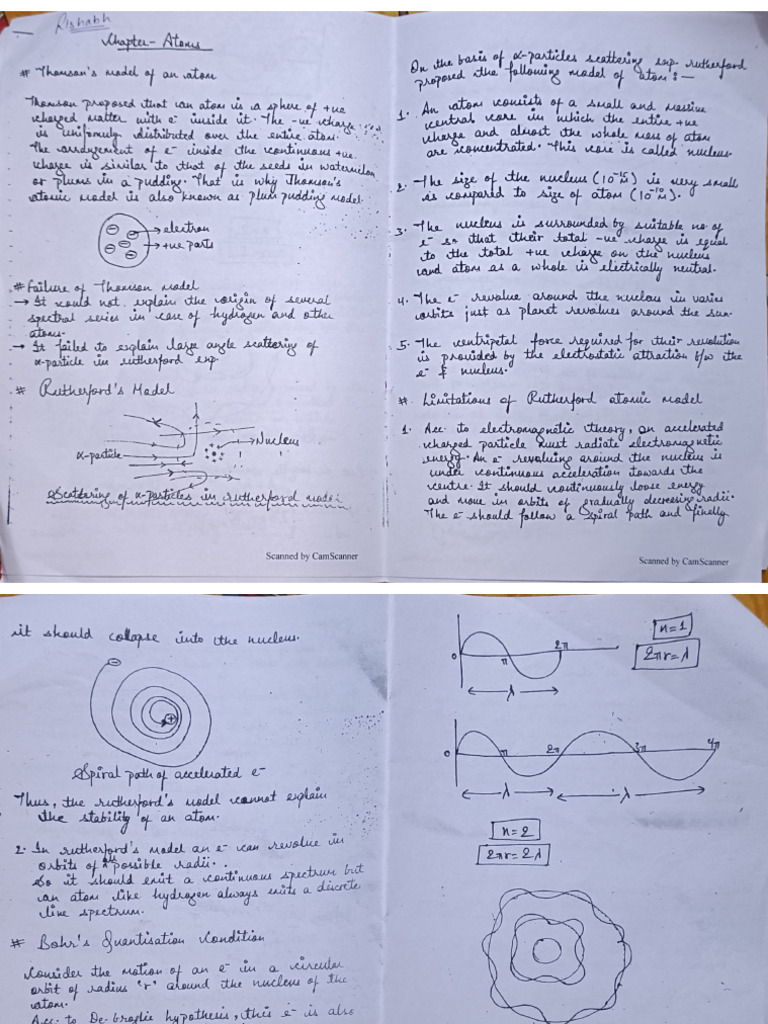 Rishabh
Chapter - Atoms
# Thomson's model of an atom
Thomson proposed that an atom is a sphere of +ve
charged matter with e⁻ inside it. The -ve charge
is uniformly distributed over the entire atom.
The arrangement of e⁻ inside the continuous +ve
charge is similar to that of the seeds in watermelon
or plums in a pudding. That is why Thomson's
atomic model is also known as plum pudding model.
→ electron
→ +ve parts
# Failure of Thomson Model
→ It could not explain the origin of several
spectral series in case of hydrogen and other
atoms.
→ It failed to explain large angle scattering of
α-particle in rutherford exp.
# Rutherford's Model
→ Nucleus
α-particle
Scattering of α-particles in rutherford model
Scanned by CamScanner
On the basis of α-particles scattering exp. rutherford
proposed the following model of atom :—
1. An atom consists of a small and massive
central core in which the entire +ve
charge and almost the whole mass of atom
are concentrated. This core is called nucleus.
2. The size of the nucleus (10⁻¹⁵ M) is very small
is compared to size of atom (10⁻¹⁰ M).
3. The nucleus is surrounded by suitable no of
e⁻ so that their total -ve charge is equal
to the total +ve charge on the nucleus
and atom as a whole is electrically neutral.
4. The e⁻ revolve around the nucleus in varies
orbits just as planet revolves around the sun.
5. The centripetal force required for their revolution
is provided by the electrostatic attraction b/w the
e⁻ & nucleus.
# Limitations of Rutherford atomic model
1. Acc. to electromagnetic theory, an accelerated
charged particle must radiate electromagnetic
energy. An e⁻ revolving around the nucleus is
under continuous acceleration towards the
centre. It should continuously loose energy
and move in orbits of gradually decreasing radii.
The e⁻ should follow a spiral path and finally
Scanned by CamScanner
it should collapse into the nucleus.
Spiral path of accelerated e⁻
Thus, the rutherford's model cannot explain
the stability of an atom.
2. In rutherford's model an e⁻ can revolve in
orbits of all possible radii.
So it should emit a continuous spectrum but
an atom like hydrogen always emits a discrete
line spectrum.
# Bohr's Quantisation Condition
Consider the motion of an e⁻ in a circular
orbit of radius 'r' around the nucleus of the
atom.
Acc. to De-broglie hypothesis, this e⁻ is also
0 π 2π
n=1
2πr=λ
← λ →
0 π 2π 3π 4π
← λ → ← λ →
n=2
2πr=2λ